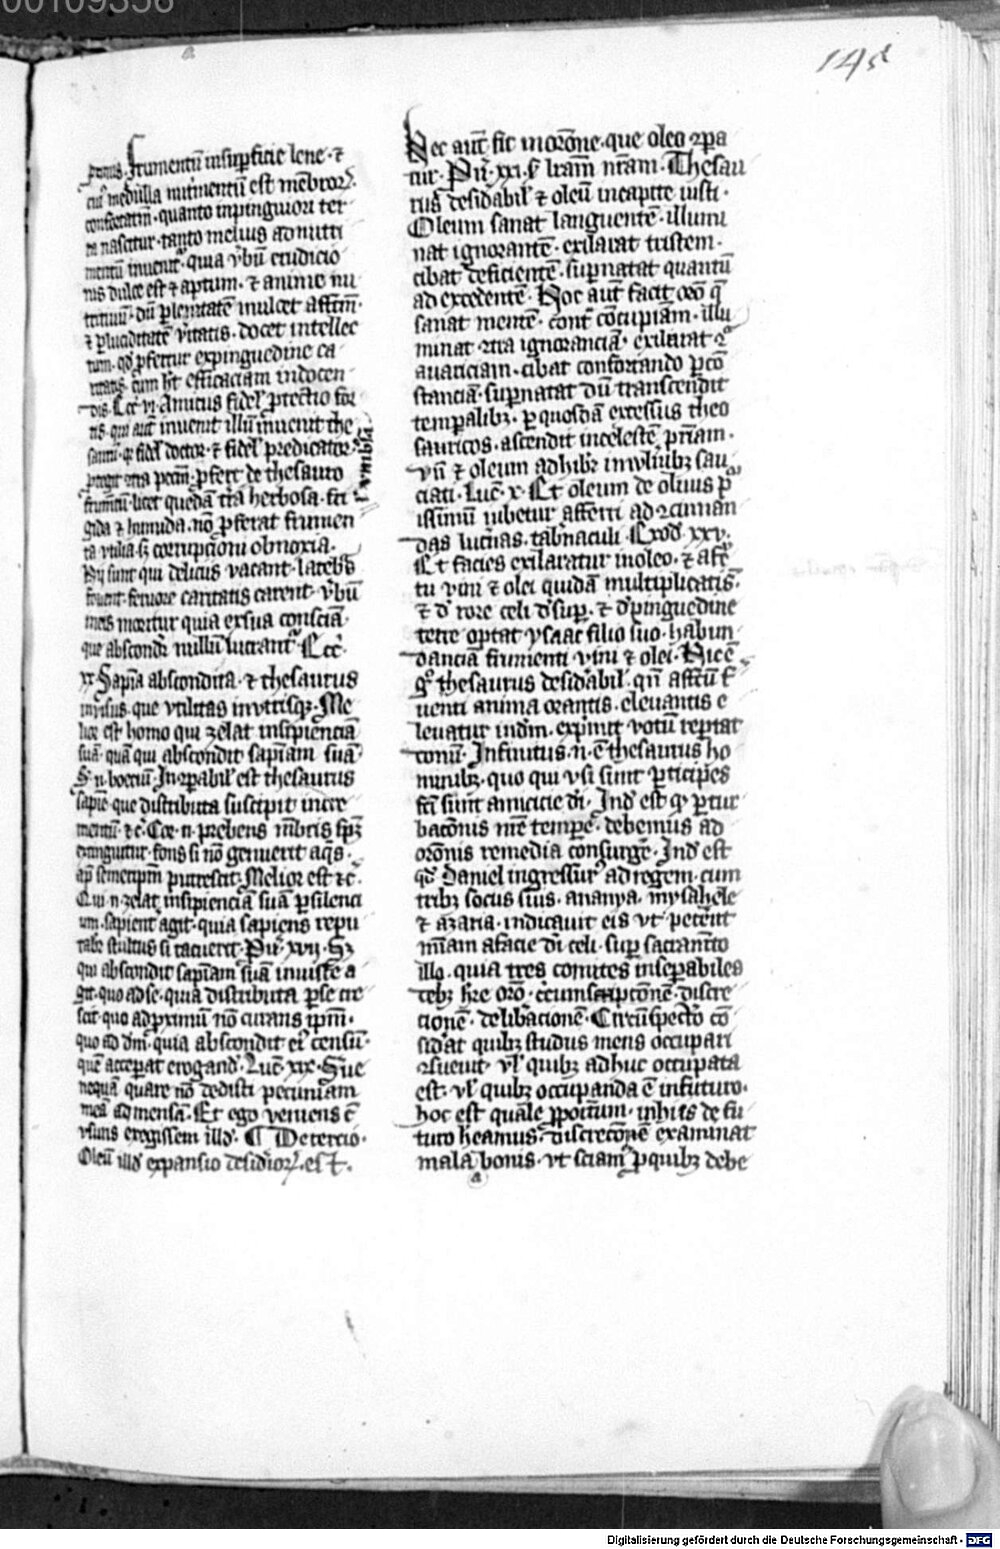 00109358
145
Frumentū in suꝑficie lene · ⁊
medulla nutⁱmentū est mēbroꝝ
quanto in pinguiori ter
ra nascitur · tanto melius ad nutri
mentū inuenit᷑ · quia v̓bū erudicio
nis dulce est ⁊ aptum · ⁊ anime nu
tritiuū · dū ꝑ lenitatē mulcet affcm̄ ·
⁊ ꝑ luciditatē v̓itatis · docet intellec
tum · qd̓ ꝓfertur ex pinguedine ca
ritatis · cum h̄t efficaciam in docen
dis · Ecc̄ vi · Amicus fidel̓ ꝓtectio for
tis · qui aut̄ inuenit illū inuenit the
saurū · fidel̓ doctor · ⁊ fidel̓ predicator
de thesauro
frum̄tū · licet quedā tr̄a herbosa · fri
gida ⁊ humida · nō ꝓferat frumen
ta vtilia · s̄ corrupcioni obnoxia ·
Hij sunt qui deliciis vacant · latebris
feruore caritatis carent · v̓bū
meis moritur quia ex sua consciā ·
que abscondi nullū lucrant᷑ · Ecc̄
xx Sapīa abscondita · ⁊ thesaurus
inuisus · que vtilitas in vtrisqꝫ · Me
lior est homo qui zelat insipienciā
suā · quā qui abscondit sapīam suā
n · boeciū · In cꝑabil̓ est thesaurus
sapīe · que distributa suscipit incre
mentū · ⁊c̄ · n · prebens mēbris
exinguitur · fons si nō genuerit aq̄s ·
ap̄ semetip̄m putrescit · Melior est ⁊c̄ ·
Qui · n · zelat insipienciā suā ꝑ silenci
um · sapient᷑ agit · quia sapiens repu
tabr̄ stultus si tacuerit · Pū · xvij · Sꝫ
qui abscondit sapīam suā inuiste a
git · quo ad se · quia distributa ꝑ se cre
scit · quo ad ꝓximū nō curans ip̄m ·
quo ad dm̄ · quia abscondit ei᷑ censū ·
quē acceꝑat erogand̓ · Luc̄ · xix · Sue
nequā quare nō dedisti pecuniam
meā ad mensā · Et ego veniens cū̄
vsuris exegissem illd̓ · ¶ De tercio ·
Oleū illd̓ expansio desid̓ioꝝ · est ·
Hec aut̄ fit in orōne · que oleo cꝑa
tur · Pū · xxi · s̄ lrām nrām · Thesau
rus desid̓abil̓ ⁊ oleū in capite iusti ·
Oleum sanat languentē · illumi
nat ignorantē · exilarat tristem ·
cibat deficientē · suꝑnatat quantū
ad excedentē · Hoc aut̄ facit orō q̄
sanat mentē · cont̄ cōcupīam · illu
minat ꝯtra ignoranciā · exilarat ꝯͣ
auariciam · cibat confortando ꝑ cō
stanciā · suꝑnatat dū transcendit
temꝑalibꝫ · ꝑ quosdā excessus theo
sauricos · ascendit in celestē pr̄iam ·
vn̄ ⁊ oleum adhibr̄ in vulnibꝫ sau
ciati · Luc̄ · x · Et oleum de oliuis pᷓ
issimū iubetur afferri ad ꝯcinnan
das luc̄nas · tab̓naculi · Exod̓ xxv ·
Et facies exilaratur in oleo · ⁊ a fr̄c
tu vini ⁊ olei quidā multiplicatis᷑ ·
⁊ d̓ rore celi d̓suꝑ · ⁊ d̓ pinguedine
terre optat ysaac filio suo · habun
danciā frumenti · vini ⁊ olei · Hic ē
gͦ thesaurus desid̓abil̓ · qn̄ affcū f̄
uenti anima orantis · eleuantis e
leuatur in dm̄ · exp̄mit votū rep̄tat
conū · Infinitus · n · ē thesaurus ho
minibꝫ · quo qui vsi sunt ꝑticipes
fc̄i sunt amicicie di · Ind̓ est qͥ ꝑ tur
bacōnis mē tempē · debemus ad
orōnis remedia consurgē · Ind̓ est
qd̓ Daniel ingressur᷑ ad regem · cum
tribꝫ sociis suis · anania · mysahele
⁊ azaria · indicauit eis vt petēnt
mīam a facie di celi · suꝑ sacramēto
illo · quia tres comites insepabiles
debꝫ hr̄e orō · cc̄umspectōnē · discre
cionē · delibacionē · Circūspectō cō
sid̓at quibꝫ studiis mens occupari
ꝯsueuit · vl̓ quibꝫ adhuc occupata
est · vl̓ quibꝫ occupanda ē in futuro ·
hoc est quale ꝓpoitum · in hiis de fu
turo heamus · discrecōne examinat
mala bonis · vt sciam᷑ ꝑ quibꝫ debe
a
Digitalisierung gefördert durch die Deutsche Forschungsgemeinschaft - DFG